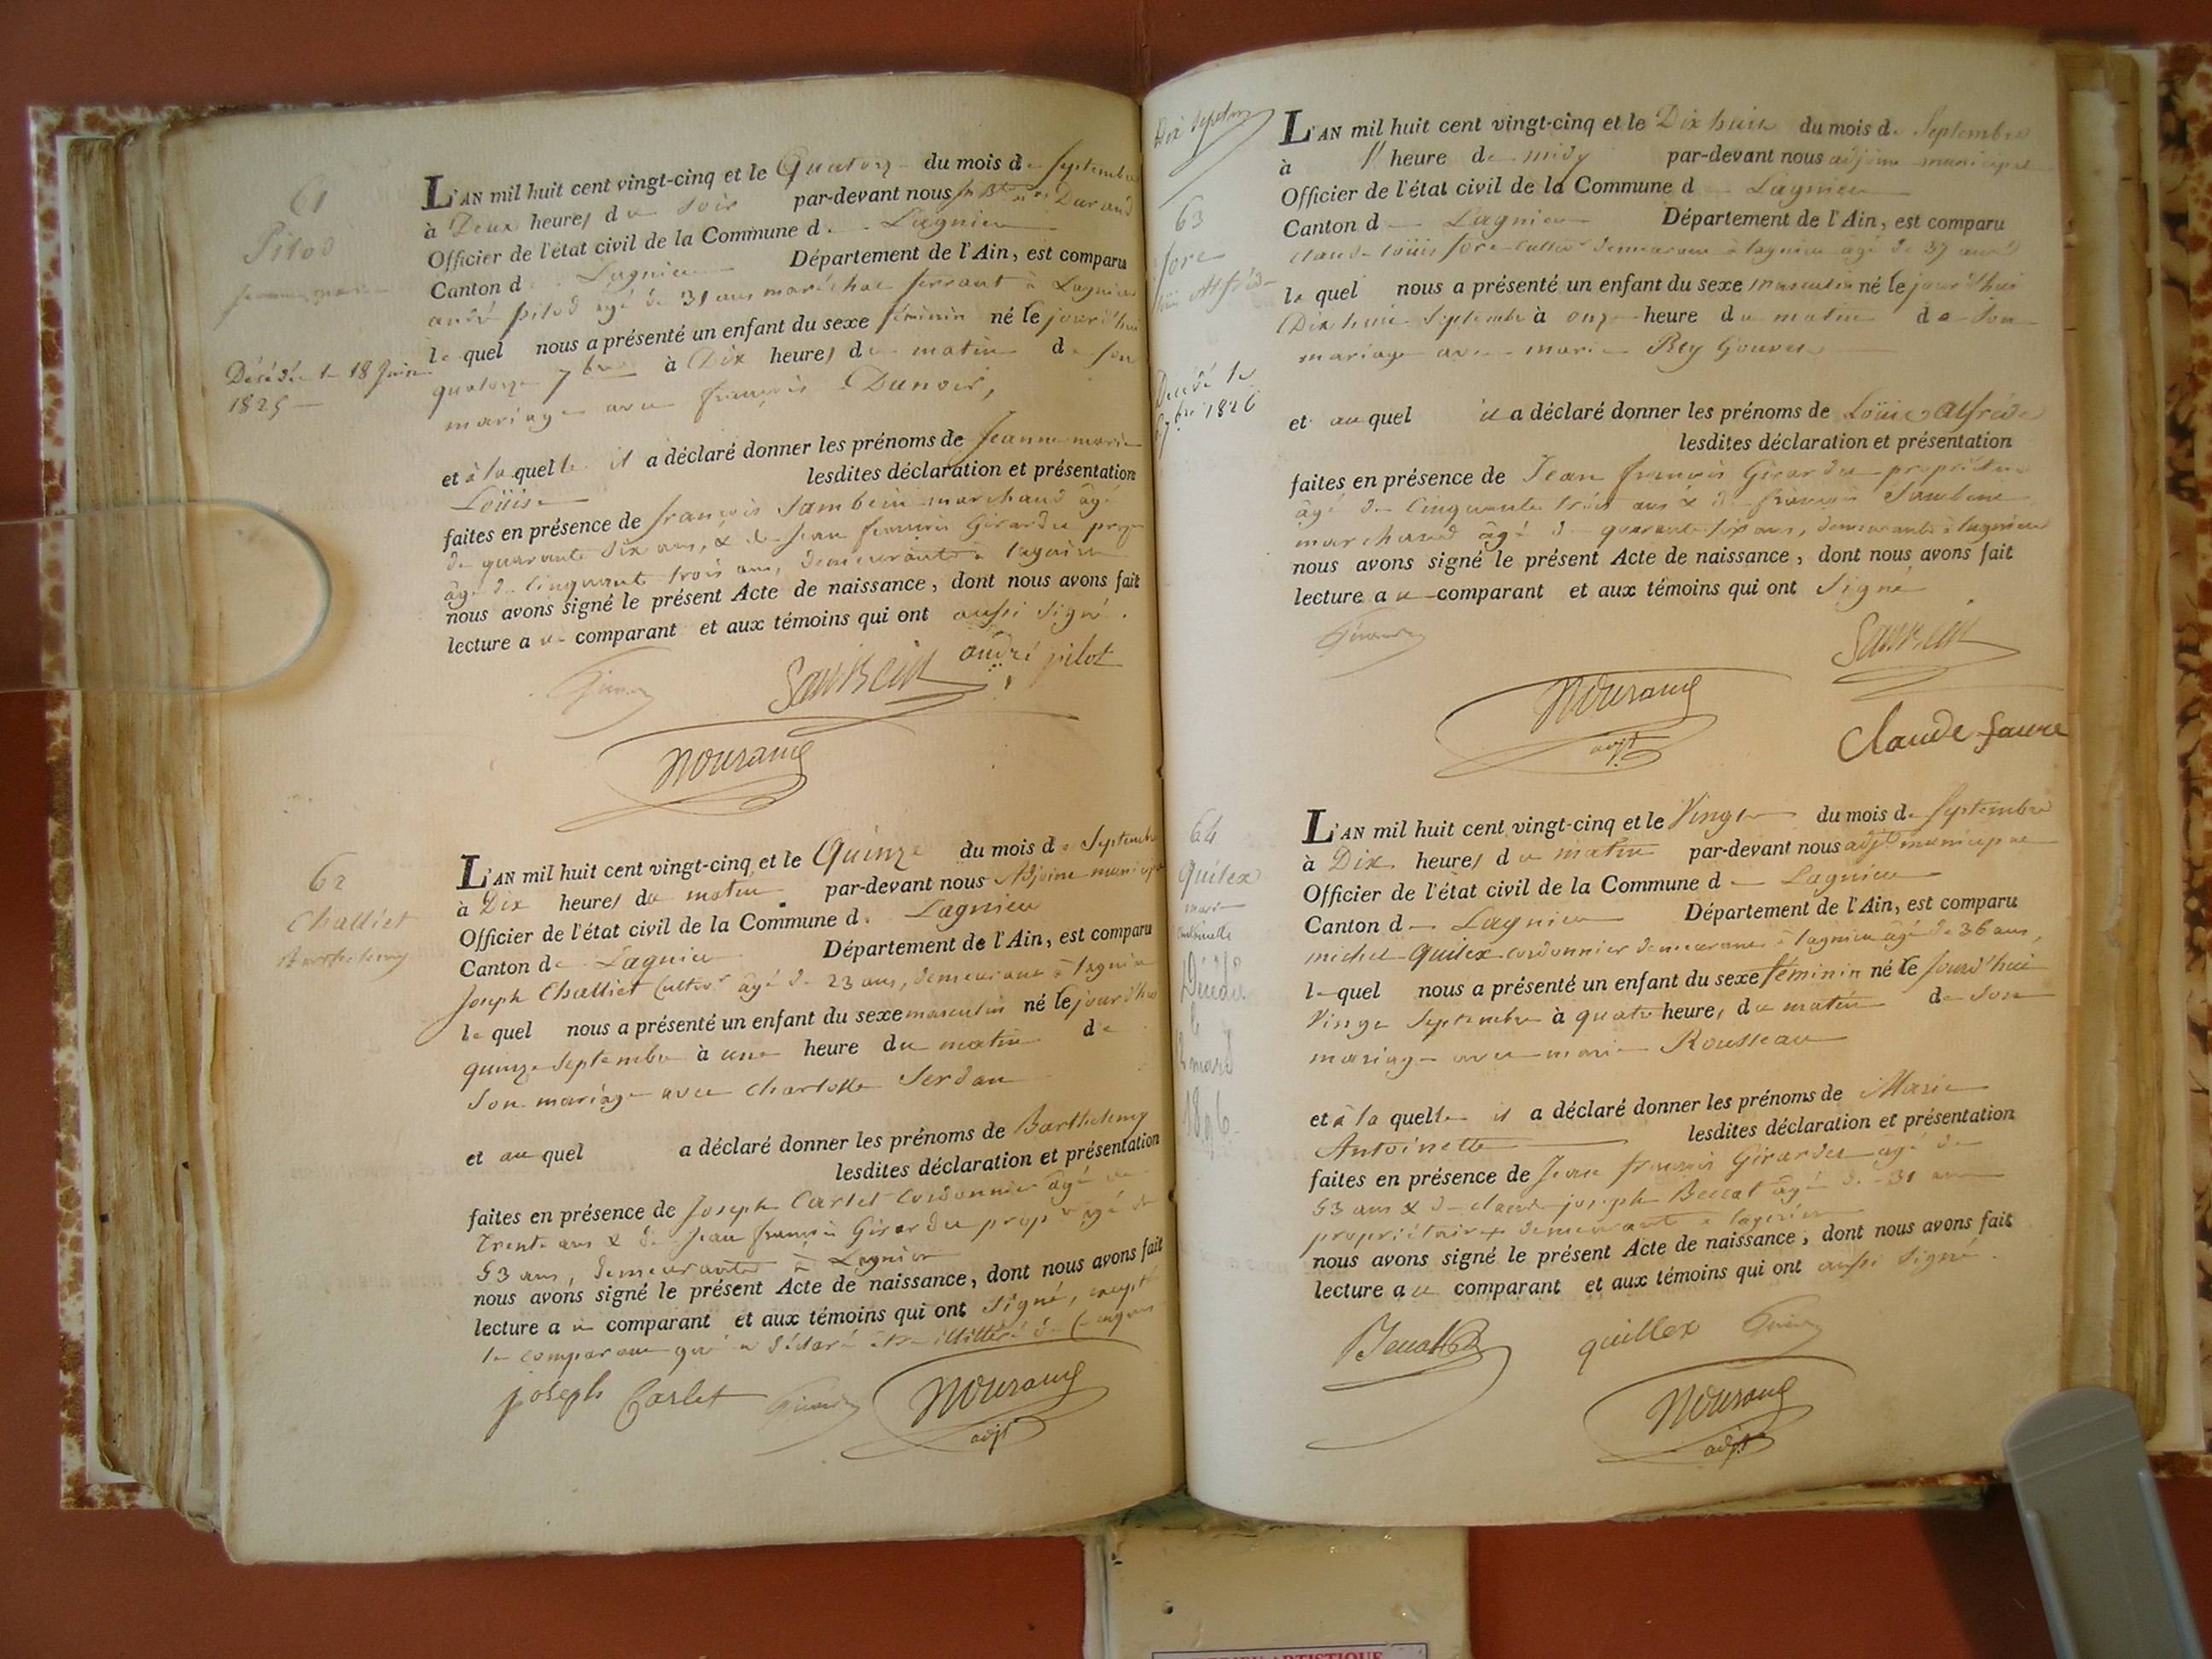 61
Pilod
jeanne marie
Décédée le 18 Juin
1825
L'AN mil huit cent vingt-cinq et le Quatorze du mois de Septembre
à Deux heures du Soir par-devant nous Durand
Officier de l'état civil de la Commune d Lagnieu
Canton d Lagnieu Département de l'Ain, est comparu
andré pilod âgé de 31 ans maréchal ferrant à Lagnieu
le quel nous a présenté un enfant du sexe féminin né le jourd'hui
quatorze 7bre à Dix heures du matin de son
mariage avec françois Dunoir,
et à la quelle il a déclaré donner les prénoms de Jeanne marie
Loüise lesdites déclaration et présentation
faites en présence de françois Sambein marchand âgé
de quarante six ans, & de jean françois Girardet prop
âgé de cinquante trois ans, demeurants à lagnieu
nous avons signé le présent Acte de naissance, dont nous avons fait
lecture au comparant et aux témoins qui ont aussi signé.
andré pilot
62
Challiet
Barthelemy
L'AN mil huit cent vingt-cinq et le Quinze du mois de Septembre
à Dix heures du matin par-devant nous Adjoint municipal
Officier de l'état civil de la Commune d Lagnieu
Canton de Lagnieu Département de l'Ain, est comparu
Joseph Challiet Cultivr âgé de 23 ans, demeurant à lagnieu
le quel nous a présenté un enfant du sexe masculin né le jourd'hui
quinze Septembre à une heure du matin de
Son mariage avec charlotte Serdan
et au quel a déclaré donner les prénoms de Barthelemy
lesdites déclaration et présentation
faites en présence de Joseph Carlet Cordonnier âgé de
Trente ans & de Jean françois Girardet prop âgé de
53 ans, demeurants à Lagnieu
nous avons signé le présent Acte de naissance, dont nous avons fait
lecture au comparant et aux témoins qui ont signé, excepté
le comparant qui a déclaré être illitéré de ce enquis
joseph Carlet
adjt
Dix Septem
63
fore
Loüis Alfréd
Décédé le
7bre 1826
L'AN mil huit cent vingt-cinq et le Dix huit du mois de Septembre
à 1 heure de midy par-devant nous adjoint municipal
Officier de l'état civil de la Commune d Lagnieu
Canton d Lagnieu Département de l'Ain, est comparu
claude loüis fore cultivr demeurant à lagnieu âgé de 37 ans
le quel nous a présenté un enfant du sexe masculin né le jourd'hui
Dix huit Septembre à onze heure du matin de Son
mariage avec marie Rey Gouvet
et au quel il a déclaré donner les prénoms de Loüis Alfréde
lesdites déclaration et présentation
faites en présence de Jean françois Girardet propriétaire
âgé de Cinquante trois ans & de françois Sambein
marchand âgé de quarante six ans, demeurants à lagnieu
nous avons signé le présent Acte de naissance, dont nous avons fait
lecture au comparant et aux témoins qui ont Signé
adjt
Claude faure
64
Quilex
marie
antoinette
Décédée
le
mars
L'AN mil huit cent vingt-cinq et le Vingt du mois de Septembre
à Dix heures du matin par-devant nous adjt municipal
Officier de l'état civil de la Commune d Lagnieu
Canton d Lagnieu Département de l'Ain, est comparu
michel Quilex cordonnier demeurant à lagnieu âgé de 36 ans,
le quel nous a présenté un enfant du sexe féminin né le jourd'hui
Vingt Septembre à quatre heures du matin de son
mariage avec marie Rousseau
et à la quelle il a déclaré donner les prénoms de Marie
Antoinette lesdites déclaration et présentation
faites en présence de Jean françois Girardet âgé de
53 ans & de claude joseph Beccat âgé de 31 ans
propriétaires demeurants à lagnieu
nous avons signé le présent Acte de naissance, dont nous avons fait
lecture au comparant et aux témoins qui ont aussi signé.
quillex
adjt